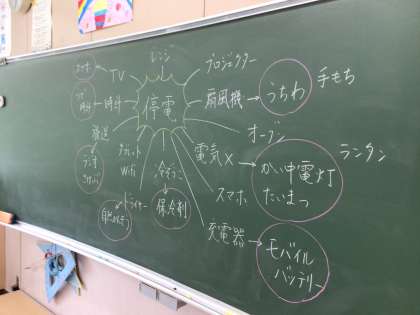 レンジ
プロジェクター
TV
停電
扇風機 → うちわ
手もち
時計
オーブン
放送
ラジオ
タブレット
Wifi
電気 × → かい中電灯
たいまつ
ランタン
冷ぞうこ
保冷剤
スマホ
ドライヤー
自然
充電器 → モバイル
バッテリー